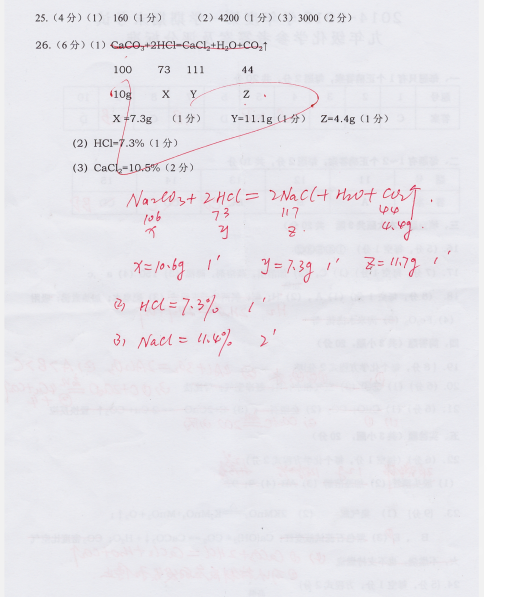 25.(4分)(1) 160(1分) (2)4200(1分)(3)3000(2分)
26.(6分)(1) CaCO₃+2HCl=CaCl₂+H₂O+CO₂↑
100 73 111 44
10g X Y Z
X =7.3g (1分) Y=11.1g(1分) Z=4.4g(1分)
(2) HCl=7.3%(1分)
(3) CaCl₂=10.5%(2分)
Na₂CO₃+2HCl=2NaCl+H₂O+CO₂↑.
106 73 117 44
x y z 4.4g
x=10.6g 1' y=7.3g 1' z=11.7g 1'
(2) HCl=7.3% 1'
(3) NaCl=11.4% 2'